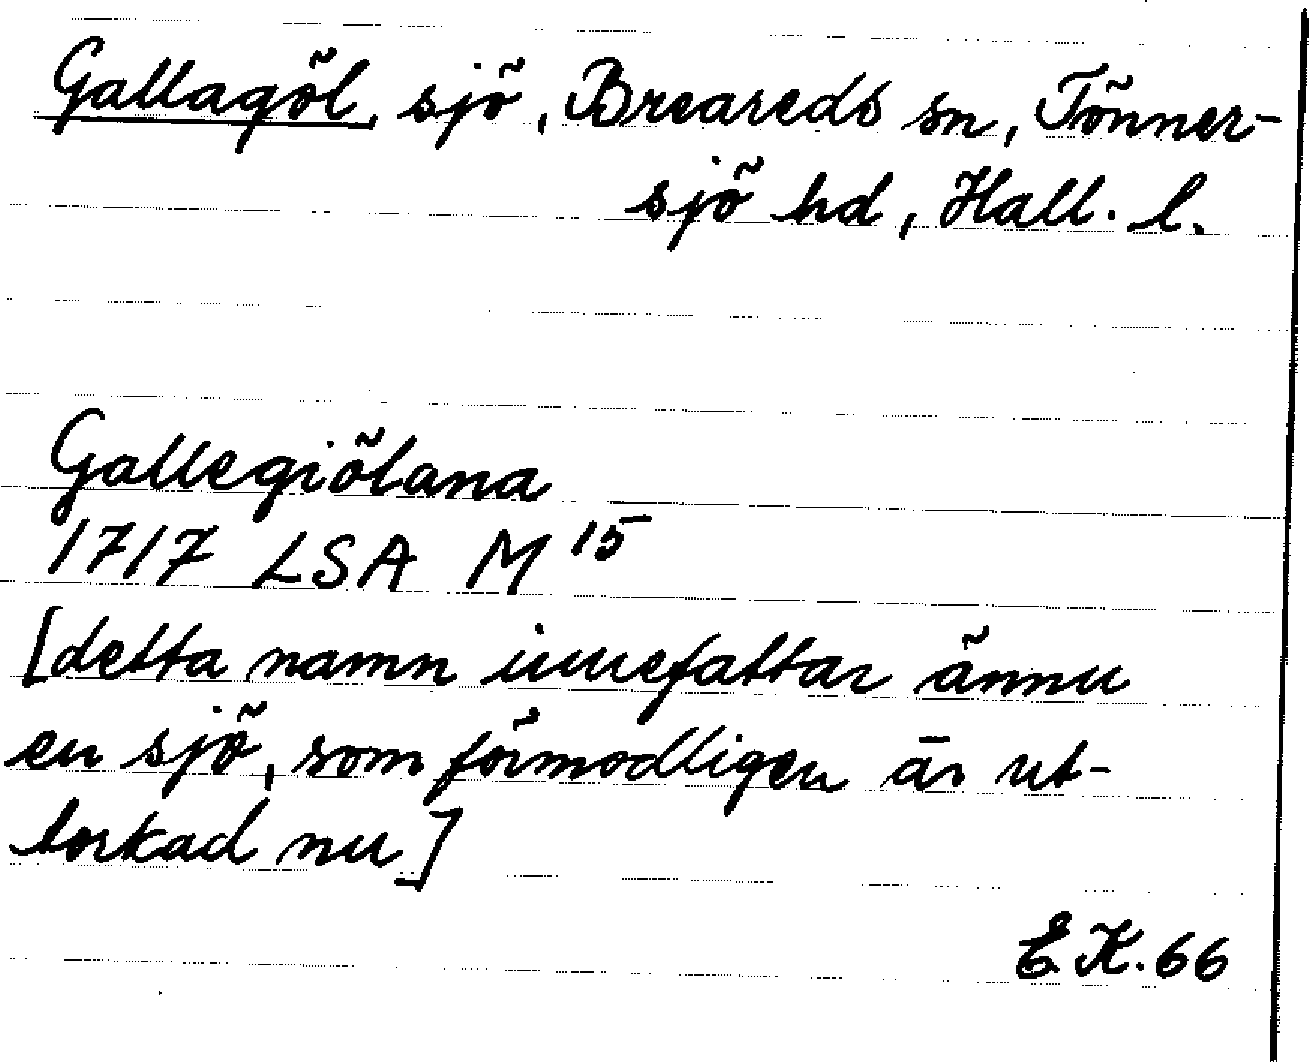 Gallagöl, sjö, Breareds sn, Tönner-
sjö hd, Hall. l.
Gallegiölana
1717 LSA M 15
[detta namn innefattar ännu
en sjö, som förmodligen är ut-
torkad nu]
E.K. 66